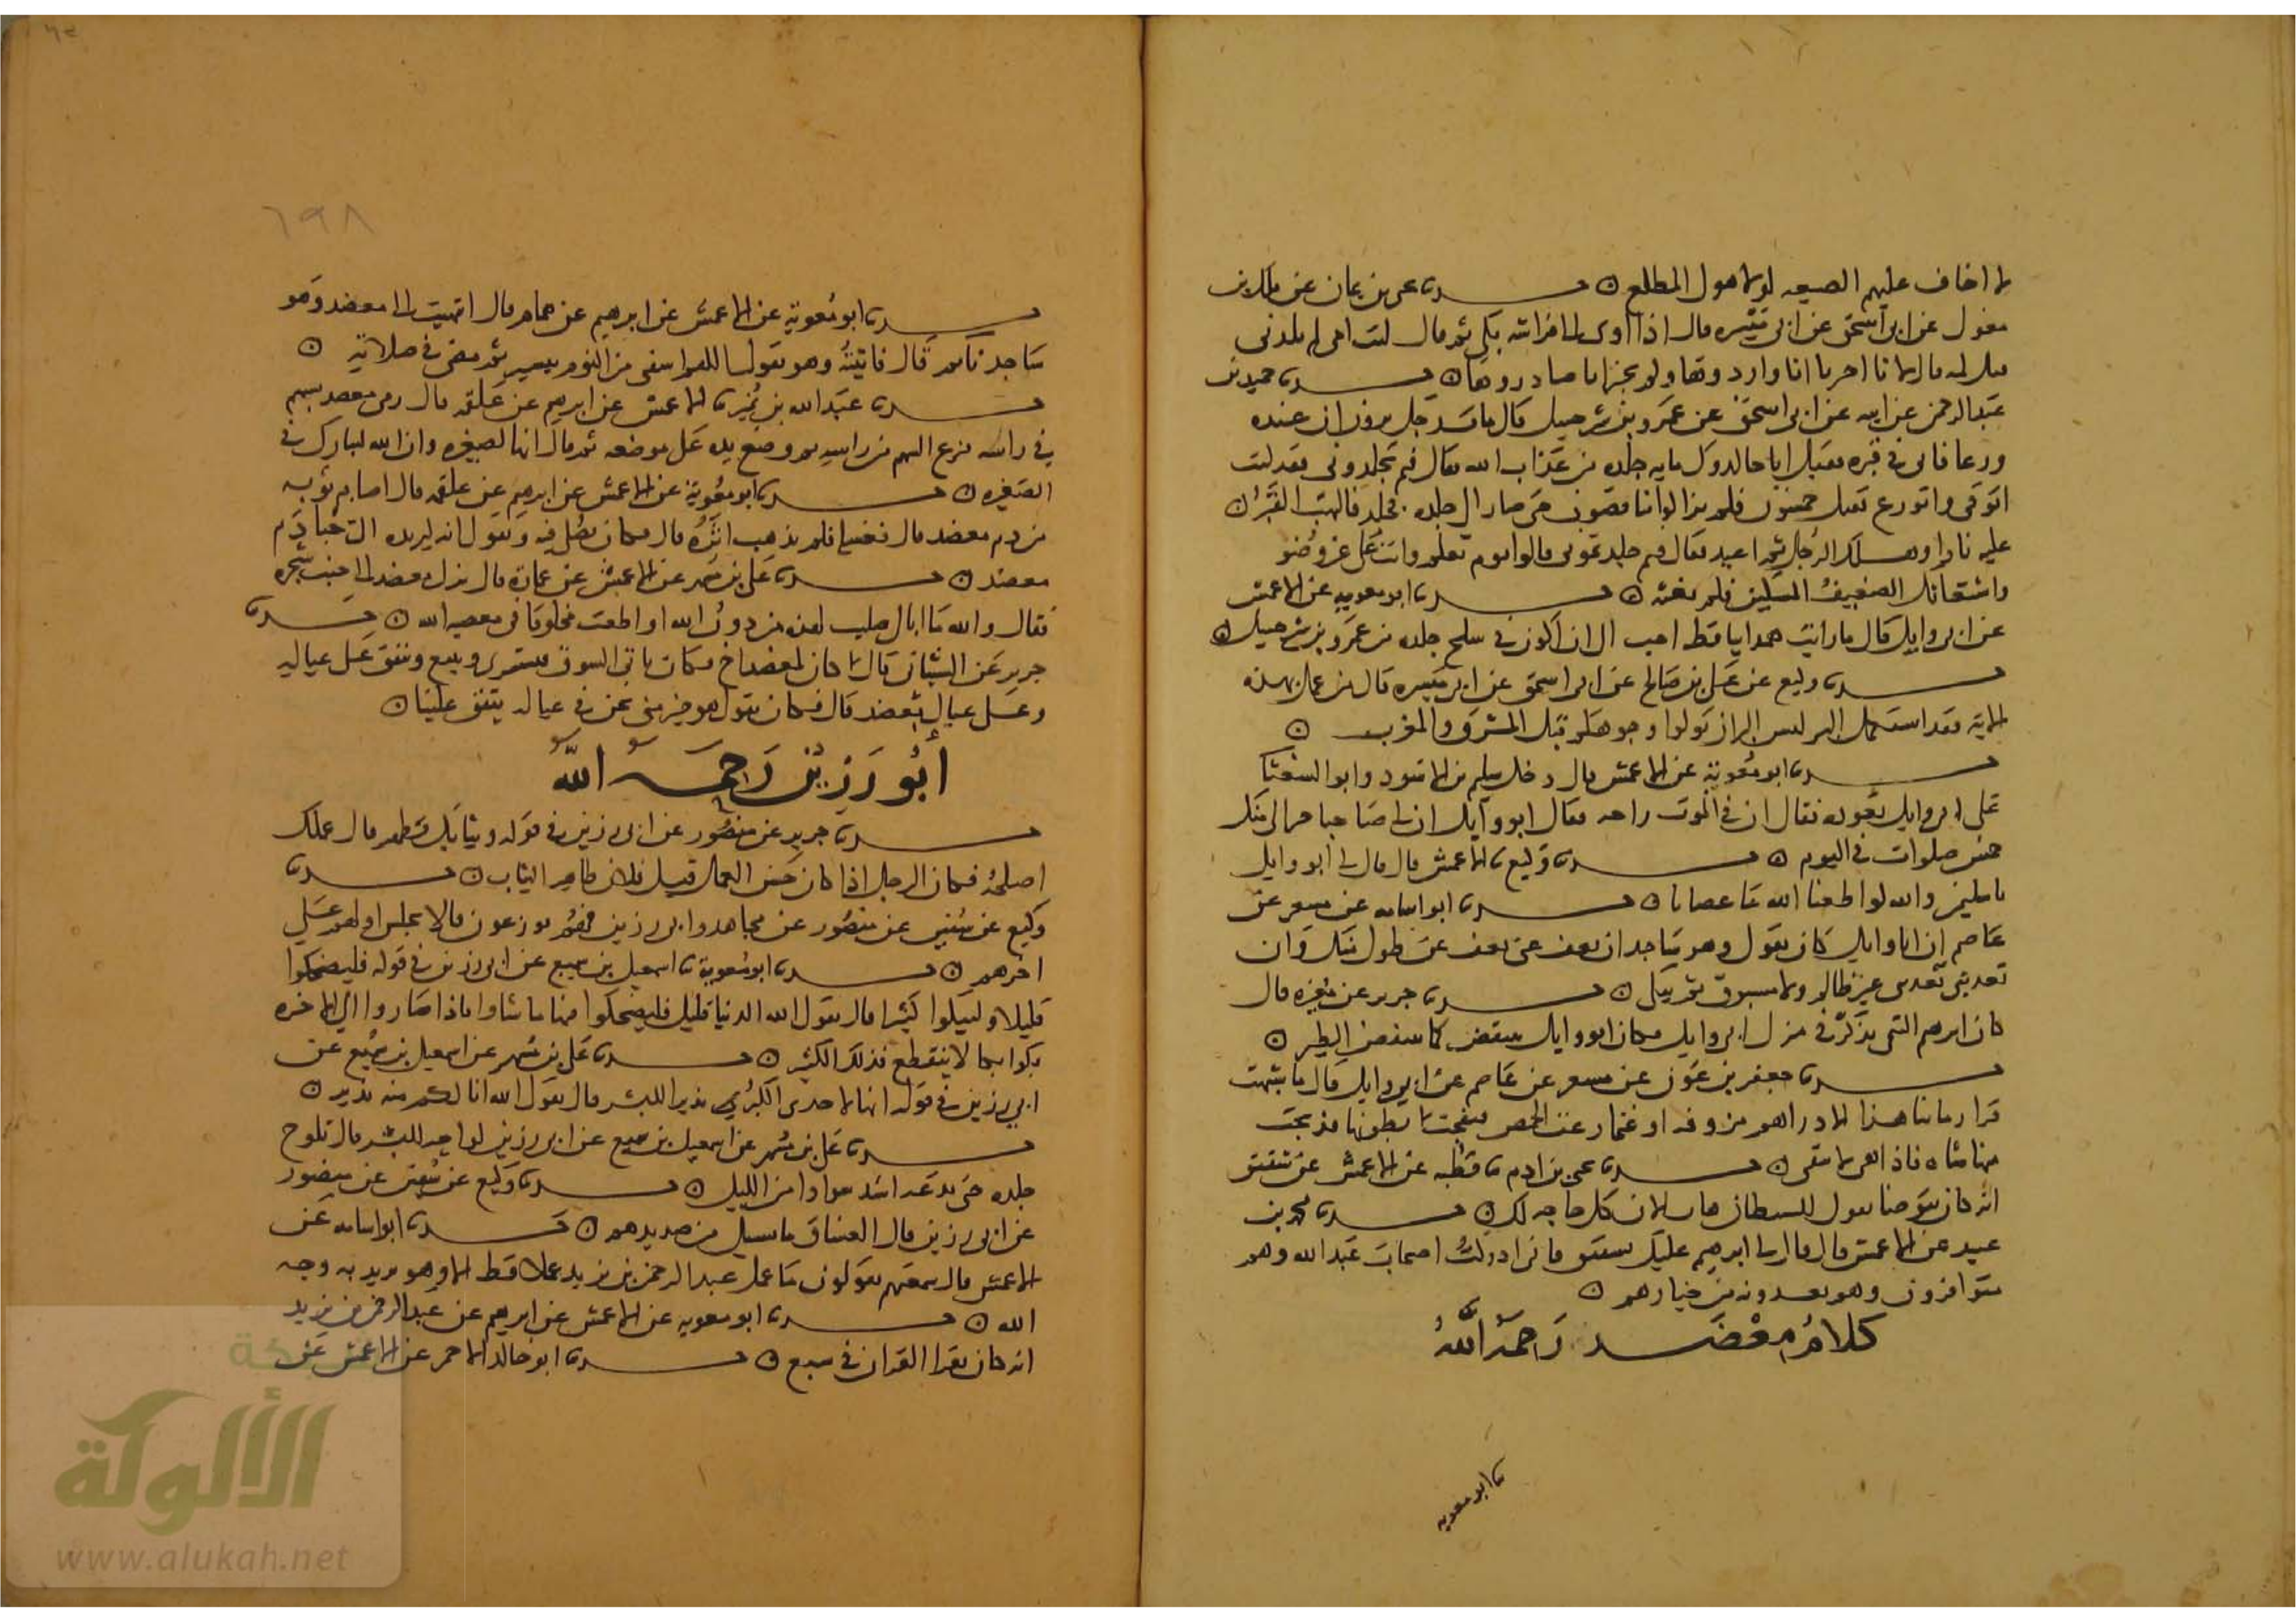 لا اخاف عليهم الصيعه لولا هول المطلع ن حدثنا يحيى بن يمان عن ملك بن
مغول عن ابي اسحق عن ابي ميسره قال اذا اوى الى فراشه بكى ثم قال ليت امي لم تلدني
فقيل له قال لانا اخبرنا انا واردوها ولم نخبر انا صادروها ن حدثنا حميد بن
عبد الرحمن عن ابيه عن ابي اسحق عن عمرو بن شرحبيل قال مات رجل يرون ان عنده
ورعا فاتي في قبره فقيل انا جالدوك مايه جلده من عذاب الله فقال فيم تجلدوني فقد كنت
اتوقى واتورع فقيل خمسون فلم يزالوا يناقصونه حتى صار الى جلده فجلد فالتهب القبر
عليه نارا وهلك الرجل ثم اعيد فقال فيم جلدتموني قالوا يوم تعلم وانت على غير وضو
واستغاثك الضعيف المسكين فلم تغثه ن حدثنا ابو معويه عن الاعمش
عن ابي وايل قال ما رايت همدانيا قط احب الي ان اكون في سلخ جلده من عمرو بن شرحبيل ن
حدثنا وكيع عن علي بن صالح عن ابي اسحق عن ابي ميسره قال من عمل بهذه
الاية فقد استكمل البر ليس البر ان تولوا وجوهكم قبل المشرق والمغرب ن
حدثنا ابو معوية عن الاعمش قال دخل سليم بن الاسود وابو الشعثا
على ابي وايل يعودونه فقال ان في الموت راحه فقال ابو وايل ان لي صاحبا خيرا لي منك
خمس صلوات في اليوم ن حدثنا وكيع ثنا الاعمش قال قال لي ابو وايل
يا سليمن والله لو اطعنا الله ما عصانا ن حدثنا ابو اسامه عن مسعر عن
عاصم ان ابا وايل كان يقول وهو ساجد ان تعف عني تعف عن طول منك وان
تعذبني تعذبني غير ظالم ولا مسبوق ثم يبكي ن حدثنا جرير عن مغيره قال
كان ابرهيم التيمي يذكر في منزل ابي وايل فكان ابو وايل ينتفض كما ينتفض الطير ن
حدثنا جعفر بن عون عن مسعر عن عاصم عن ابي وايل قال ما شبهت
قرا زماننا هذا الا دراهم مزوقه او غنما رعت الحمض فنفخت بطونها فذبحت
منها شاه فاذا هي لا تنقي ن حدثنا يحيى بن ادم ثنا قطبه عن الاعمش عن شقيق
انه كان يتوضا يقول للشيطان هات الان كل حاجه لك ن حدثنا محمد بن
عبيد عن الاعمش قال قال لي ابرهيم عليك بشقيق فاني ادركت اصحاب عبد الله وهم
متوافرون وهم يعدونه من خيارهم ن
كلام معضد رحمه الله
ثنا ابو معويه
٦٩٨
حدثنا ابو معوية عن الاعمش عن ابرهيم عن همام قال انتهيت الى معضد وهو
ساجد نايم قال فاتيته وهو يقول اللهم اشفني من النوم بيسير ثم مضى في صلاته ن
حدثنا عبد الله بن نمير ثنا الاعمش عن ابرهيم عن علقمه قال رمي معضد بسهم
في راسه فنزع السهم من راسه ثم وضع يده على موضعه ثم قال انها لصغيره وان الله ليبارك في
الصغيره ن حدثنا ابو معوية عن الاعمش عن ابرهيم عن علقمه قال اصاب ثوبه
من دم معضد قال فغسله فلم يذهب اثره قال فكان يصلي فيه ويقول انه ليزيده الي حبا دم
معضد ن حدثنا علي بن مسهر عن الاعمش عن عمارة قال نزل معضد الى جنب شجره
فقال والله ما ابالي صليت لهذه من دون الله او اطعت مخلوقا في معصيه الله ن حدثنا
جرير عن الشيباني قال كان لمعضد اخ فكان ياتي السوق فيشتري ويبيع وينفق على عياله
وعلى عيال معضد قال فكان يقول هو خير مني نحن في عياله ينفق علينا ن
أبو رزين رحمه الله
حدثنا جرير عن منصور عن ابي رزين في قوله وثيابك فطهر قال عملك
اصلحه فكان الرجل اذا كان حسن العمل قيل فلان طاهر الثياب ن حدثنا
وكيع عن سفين عن منصور عن مجاهد وابي رزين فهم يوزعون قالا يحبس اولهم على
اخرهم ن حدثنا ابو معوية ثنا اسمعيل بن سميع عن ابي رزين في قوله فليضحكوا
قليلا وليبكوا كثيرا قال يقول الله الدنيا قليل فليضحكوا فيها ما شاوا فاذا صاروا الى الاخره
بكوا بكا لا ينقطع فذلك الكثير ن حدثنا علي بن مسهر عن اسمعيل بن سميع عن
ابي رزين في قوله انها لاحدى الكبر نذيرا للبشر قال يقول الله انا لكم منه نذير ن
حدثنا علي بن مسهر عن اسمعيل بن سميع عن ابي رزين لواحه للبشر قال تلوح
جلده حتى تدعه اشد سوادا من الليل ن حدثنا وكيع عن سفين عن منصور
عن ابي رزين قال الغساق ما يسيل من صديدهم ن حدثنا ابو اسامه عن
الاعمش قال سمعتهم يقولون ما عمل عبد الرحمن بن يزيد عملا قط الا وهو يريد به وجه
الله ن حدثنا ابو معويه عن الاعمش عن ابرهيم عن عبد الرحمن بن يزيد
انه كان يقرا القران في سبع ن حدثنا ابو خالد الاحمر عن الاعمش عن
الألوكة
www.alukah.net